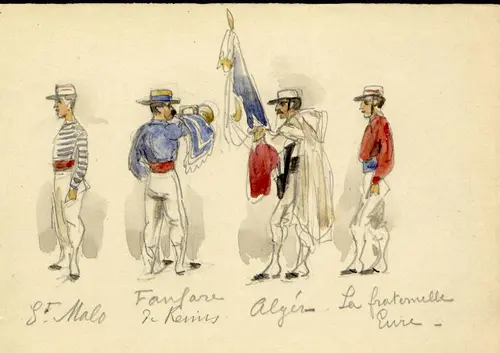 St Malo
Fanfare
de Reims
Algér.
La fraternelle
Eure -